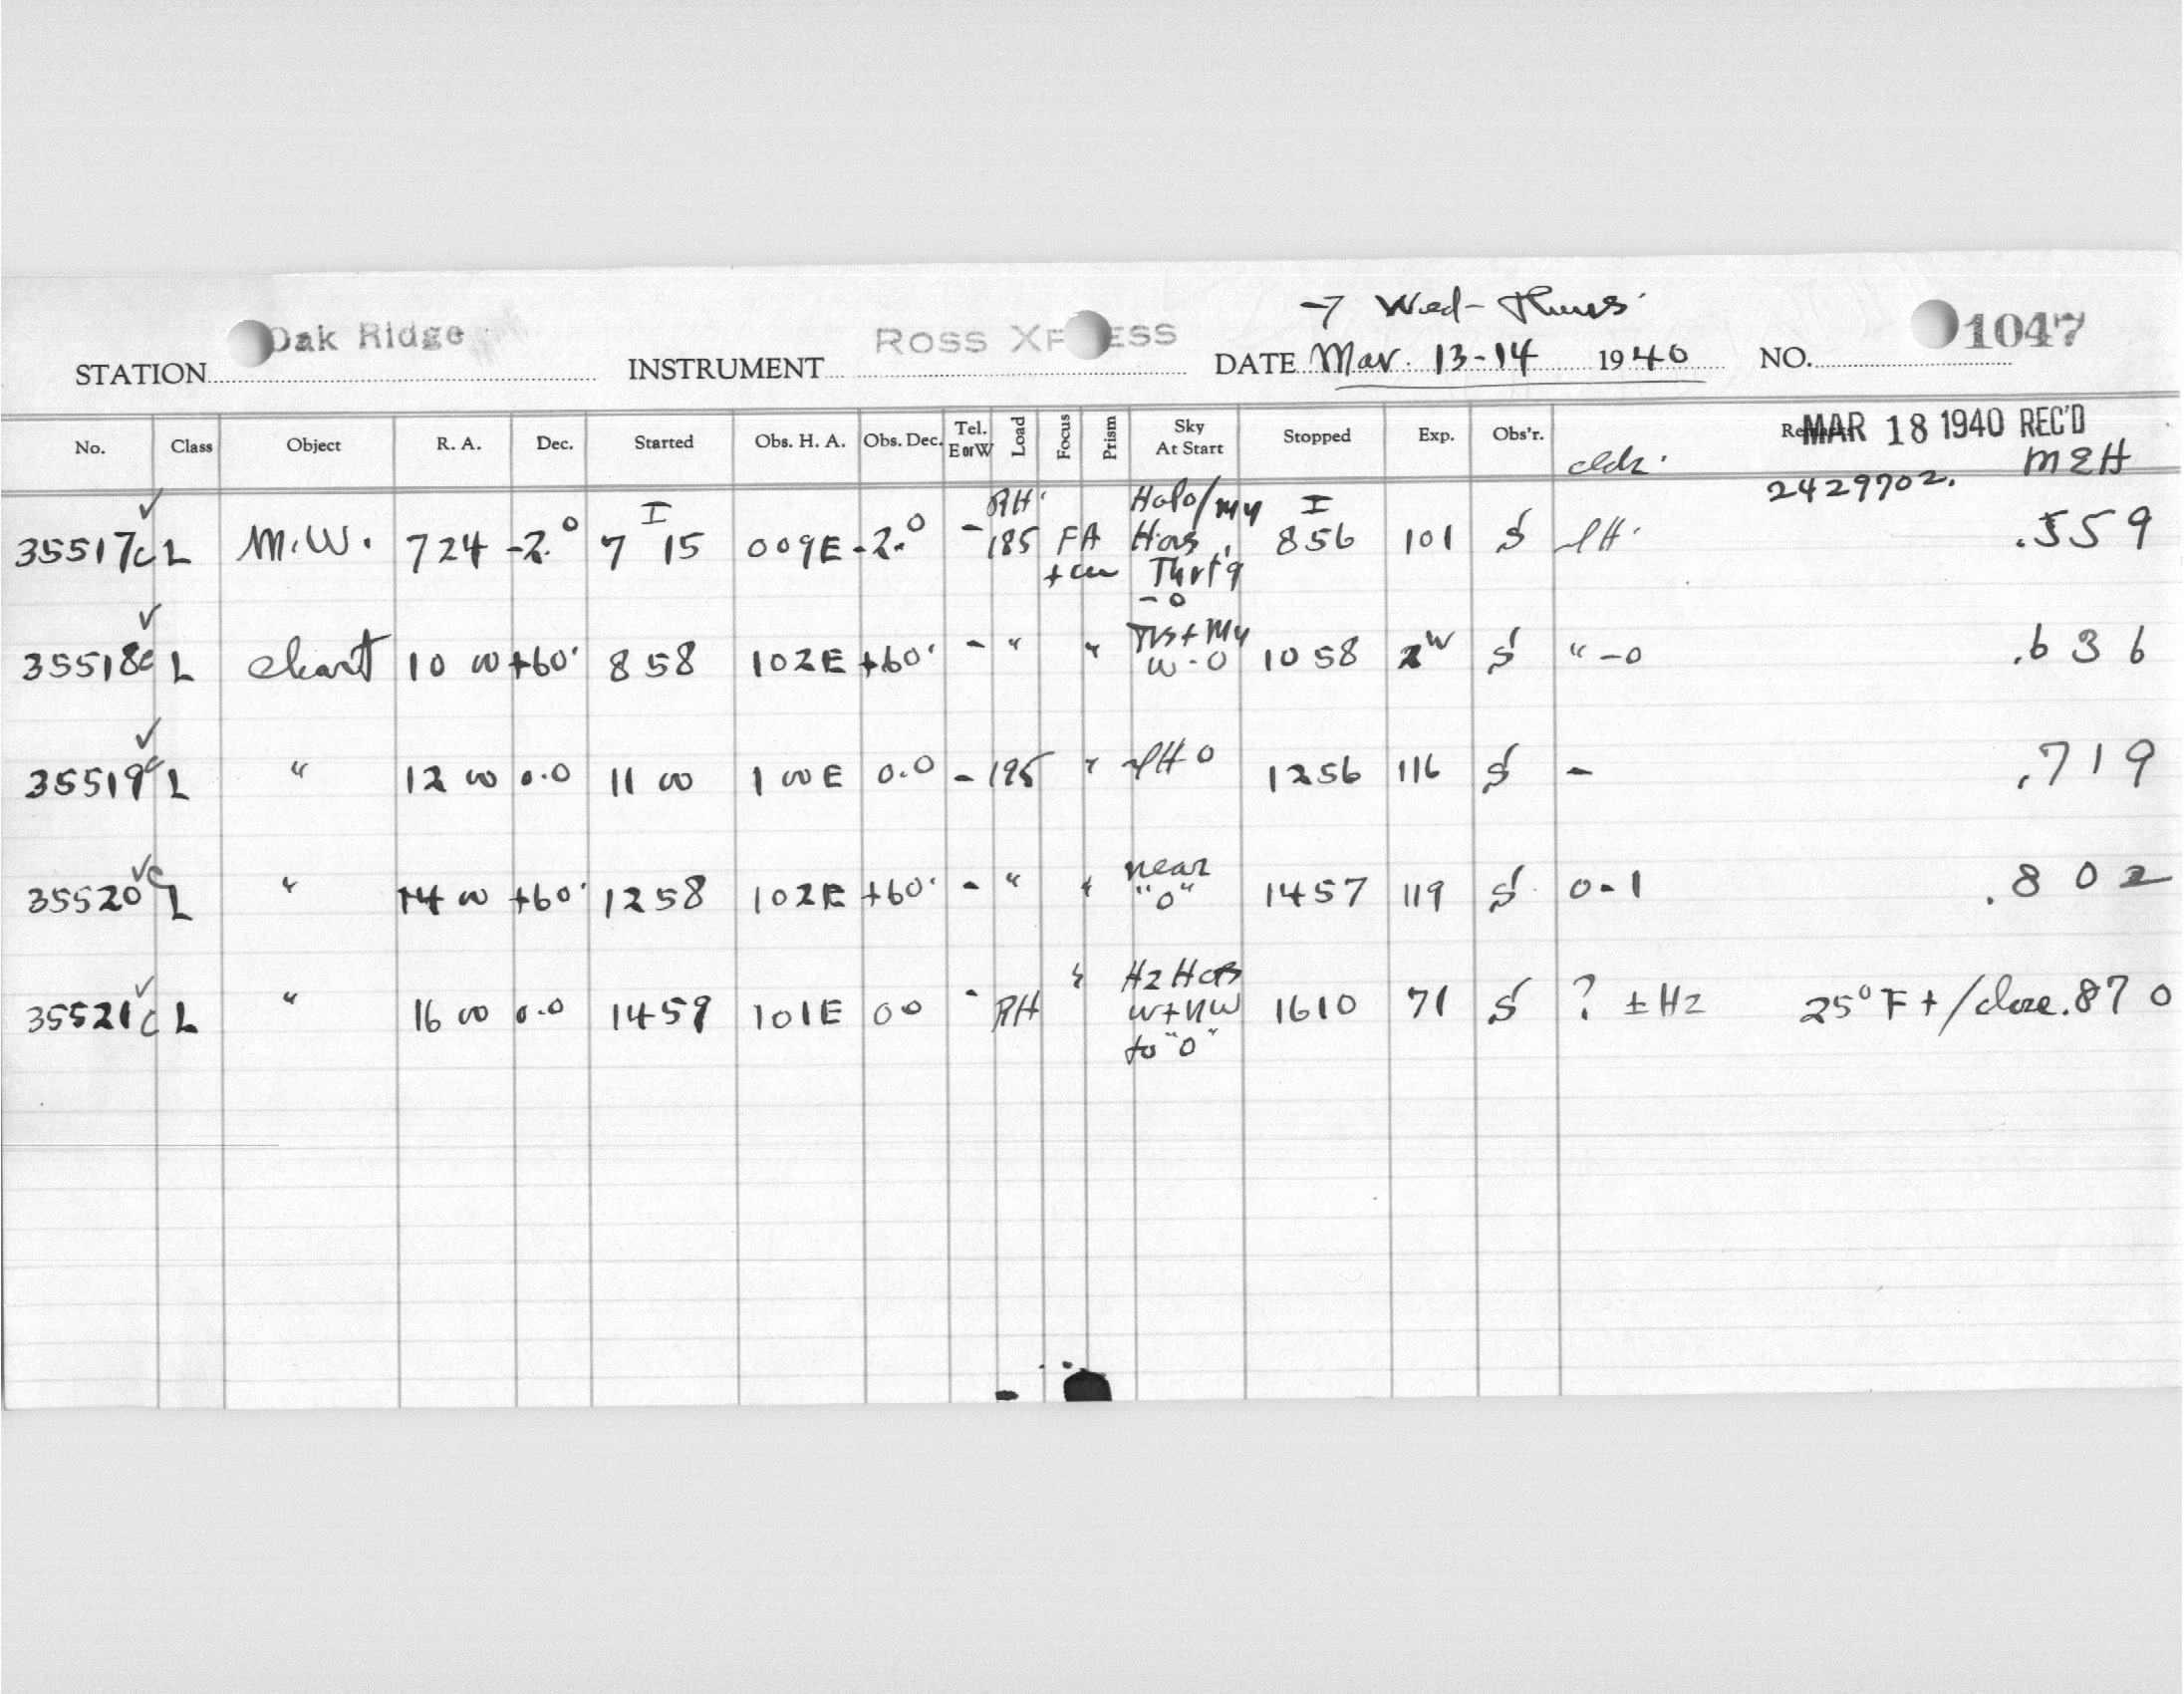 → Wed - Thurs.
STATION Oak Ridge INSTRUMENT ROSS XPRESS DATE Mar. 13-14 1940 NO. 1047
No. Class Object R. A. Dec. Started Obs. H. A. Obs. Dec. Tel. E or W Load Focus Prism Sky At Start Stopped Exp. Obs'r. Remarks
MAR 18 1940 REC'D
2429702. MEH
35517c L M.W. 7 24 -2.° I 7 15 0 09E -2.° - RH 185 FA Halo/ I 8 56 101 S .559
35518c L chart 10 00 +60 8 58 1 02E +60 - " " W-0 10 58 S " -0 .636
35519c L " 12 00 0.0 11 00 1 00E 0.0 - 195 " 0 12 56 116 S - .719
35520c L " 14 00 +60 12 58 1 02E +60 - " " near "0" 14 57 119 S 0-1 .802
35521c L " 16 00 0.0 14 59 1 01E 00 - RH " Hz W+NW to "0" 16 10 71 S ? ± Hz 25° F + /close .870